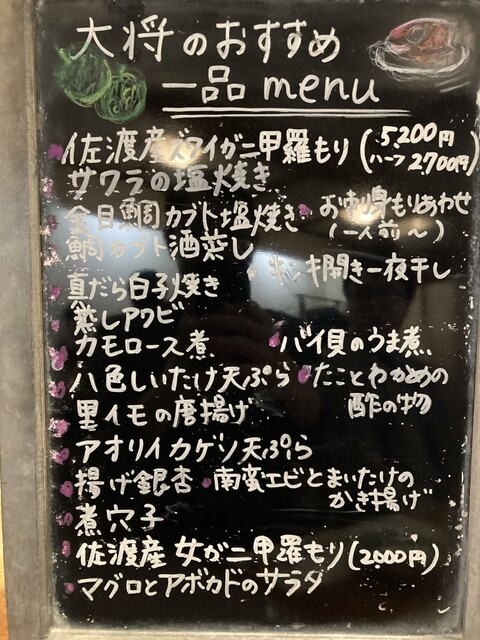 大将のおすすめ
一品menu
佐渡産ズワイガニ甲羅もり(5200円
ハーフ2700円)
サワラの塩焼き
金目鯛カブト塩焼き
お刺身もりあわせ
(一人前〜)
鯛カブト酒蒸し
開き一夜干し
真だら白子焼き
蒸しアワビ
カモロース煮
バイ貝のうま煮
八色しいたけ天ぷら
たことわかめの
酢の物
里イモの唐揚げ
アオリイカゲソ天ぷら
揚げ銀杏
南蛮エビとまいたけの
かき揚げ
煮穴子
佐渡産女ガニ甲羅もり(2000円)
マグロとアボカドのサラダ